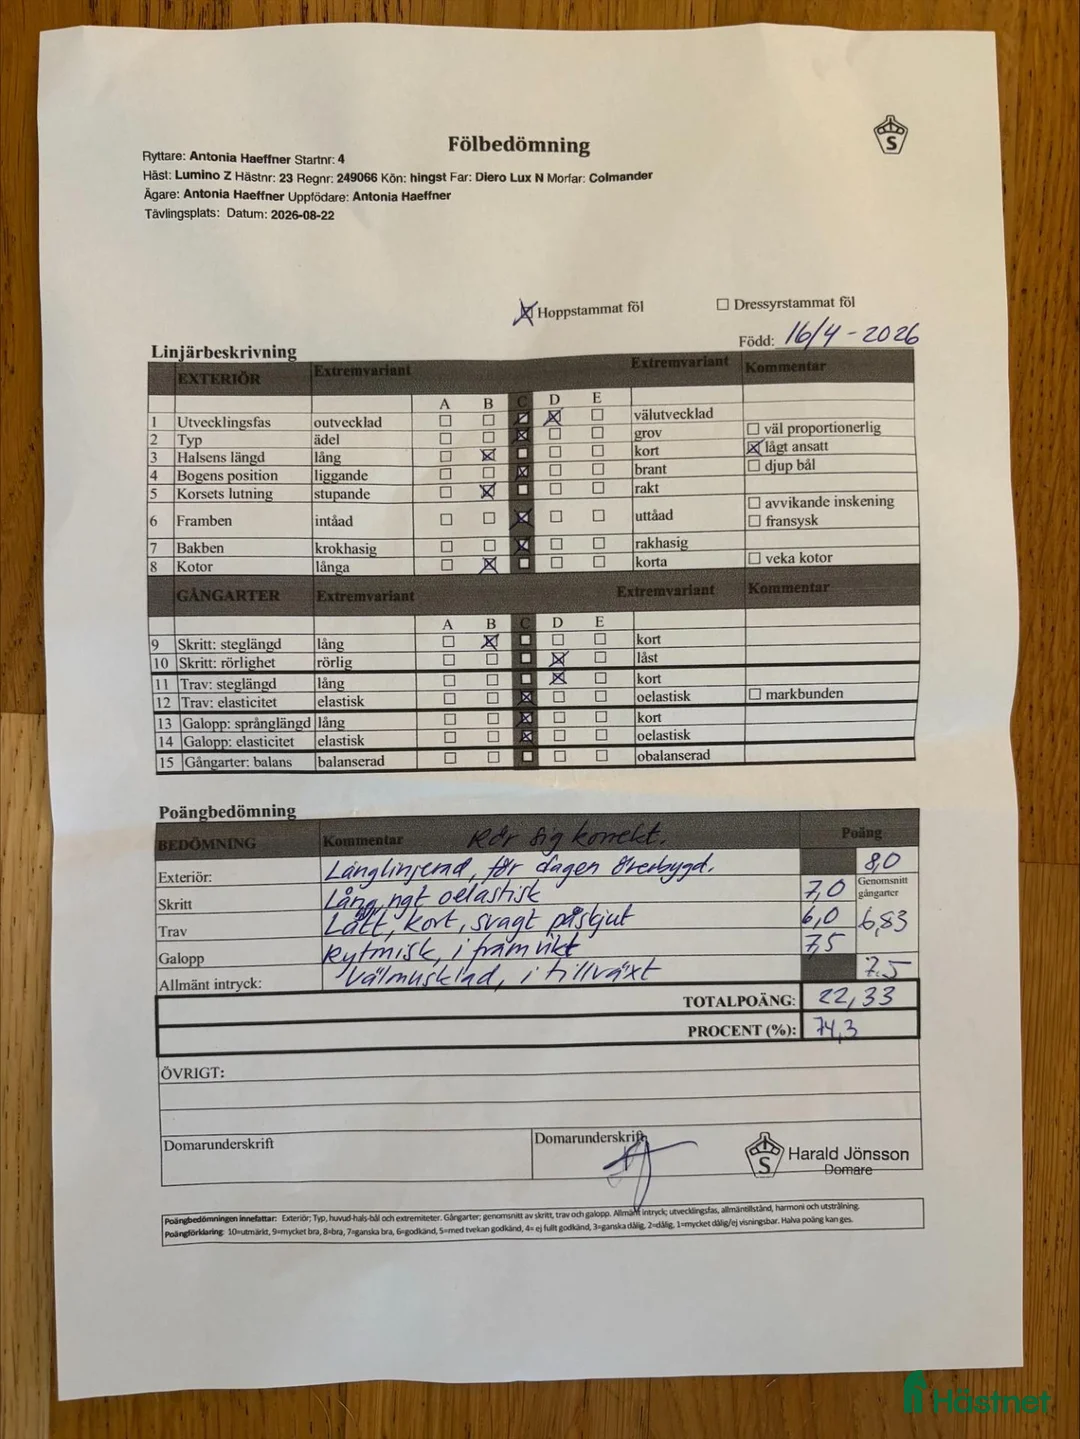 Fölbedömning
S
Ryttare: Antonia Haeffner Startnr: 4
Häst: Lumino Z Hästnr: 23 Regnr: 249066 Kön: hingst Far: Diero Lux N Morfar: Colmander
Ägare: Antonia Haeffner Uppfödare: Antonia Haeffner
Tävlingsplats: Datum: 2026-08-22
Hoppstammat föl Dressyrstammat föl
Född: 16/4-2026
Linjärbeskrivning
EXTERIÖR Extremvariant Extremvariant Kommentar
A B C D E
1 Utvecklingsfas outvecklad välutvecklad
2 Typ ädel grov väl proportionerlig
3 Halsens längd lång kort lågt ansatt
4 Bogens position liggande brant djup bål
5 Korsets lutning stupande rakt
6 Framben intåad uttåad avvikande inskening
fransysk
7 Bakben krokhasig rakhasig
8 Kotor långa korta veka kotor
GÅNGARTER Extremvariant Extremvariant Kommentar
A B C D E
9 Skritt: steglängd lång kort
10 Skritt: rörlighet rörlig låst
11 Trav: steglängd lång kort
12 Trav: elasticitet elastisk oelastisk markbunden
13 Galopp: språnglängd lång kort
14 Galopp: elasticitet elastisk oelastisk
15 Gångarter: balans balanserad obalanserad
Poängbedömning
BEDÖMNING Kommentar Rör sig korrekt. Poäng
Exteriör: Långlinjerad, för dagen överbygd. 8,0
Skritt Lång, ngt oelastisk 7,0 Genomsnitt gångarter
Trav Lätt, kort, svagt påskjut 6,0 6,83
Galopp Rytmisk, i framvikt 7,5
Allmänt intryck: Välmusklad, i tillväxt 7,5
TOTALPOÄNG: 22,33
PROCENT (%): 74,3
ÖVRIGT:
Domarunderskrift Domarunderskrift S Harald Jönsson
Domare
Poängbedömningen innefattar: Exteriör; Typ, huvud-hals-bål och extremiteter. Gångarter; genomsnitt av skritt, trav och galopp. Allmänt intryck; utvecklingsfas, allmäntillstånd, harmoni och utstrålning.
Poängförklaring: 10=utmärkt, 9=mycket bra, 8=bra, 7=ganska bra, 6=godkänd, 5=med tvekan godkänd, 4= ej fullt godkänd, 3=ganska dålig, 2=dålig, 1=mycket dålig/ej visningsbar. Halva poäng kan ges.
Hästnet